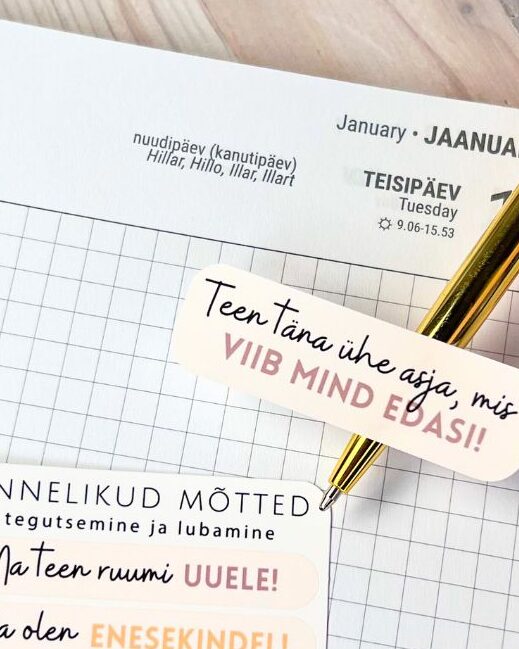 January • JAANUA
nuudipäev (kanutipäev)
Hillar, Hillo, Illar, Illart
TEISIPÄEV
Tuesday
9.06-15.53
Teen täna ühe asja, mis
VIIB MIND EDASI!
NNELIKUD MÕTTED
tegutsemine ja lubamine
Ma teen ruumi UUELE!
a olen ENESEKINDEL!